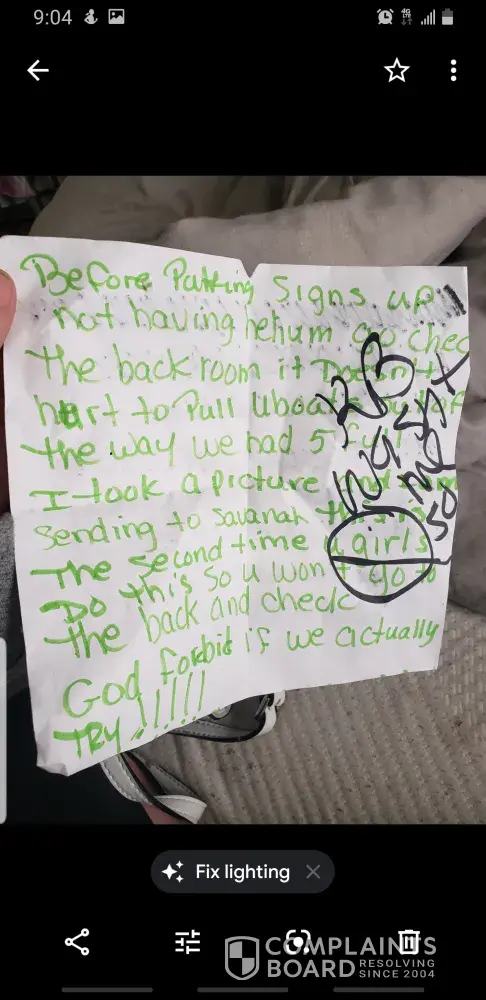 9:04
Before Putting Signs up
not having helium go chec
the back room it Doesn't
hurt to Pull Uboats out of
the way we had 5 full
I took a picture and
Sending to Savanah
The Second time girls
Do this so u won't go to
the back and check
God forbid if we actually
TRY!!!!!
Fix lighting
COMPLAINTS
BOARD RESOLVING
SINCE 2004